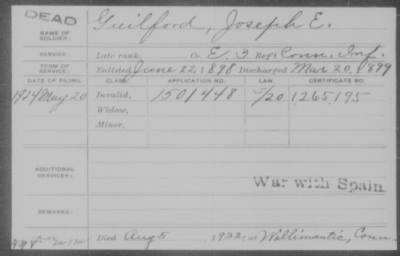 DEAD
NAME OF SOLDIER: Guilford, Joseph E.
SERVICE: Late rank, Co. E. 3 Reg't Conn. Inf.
TERM OF SERVICE: Enlisted June 22, 1898 Discharged Mar 20, 1899
DATE OF FILING. CLASS. APPLICATION NO. LAW. CERTIFICATE NO.
1924 May 20 Invalid, 1501448 5/20 1265,195
Widow,
Minor,
ADDITIONAL SERVICES:
War with Spain.
REMARKS:
Died Aug 5, 1932, at Willimantic, Conn.